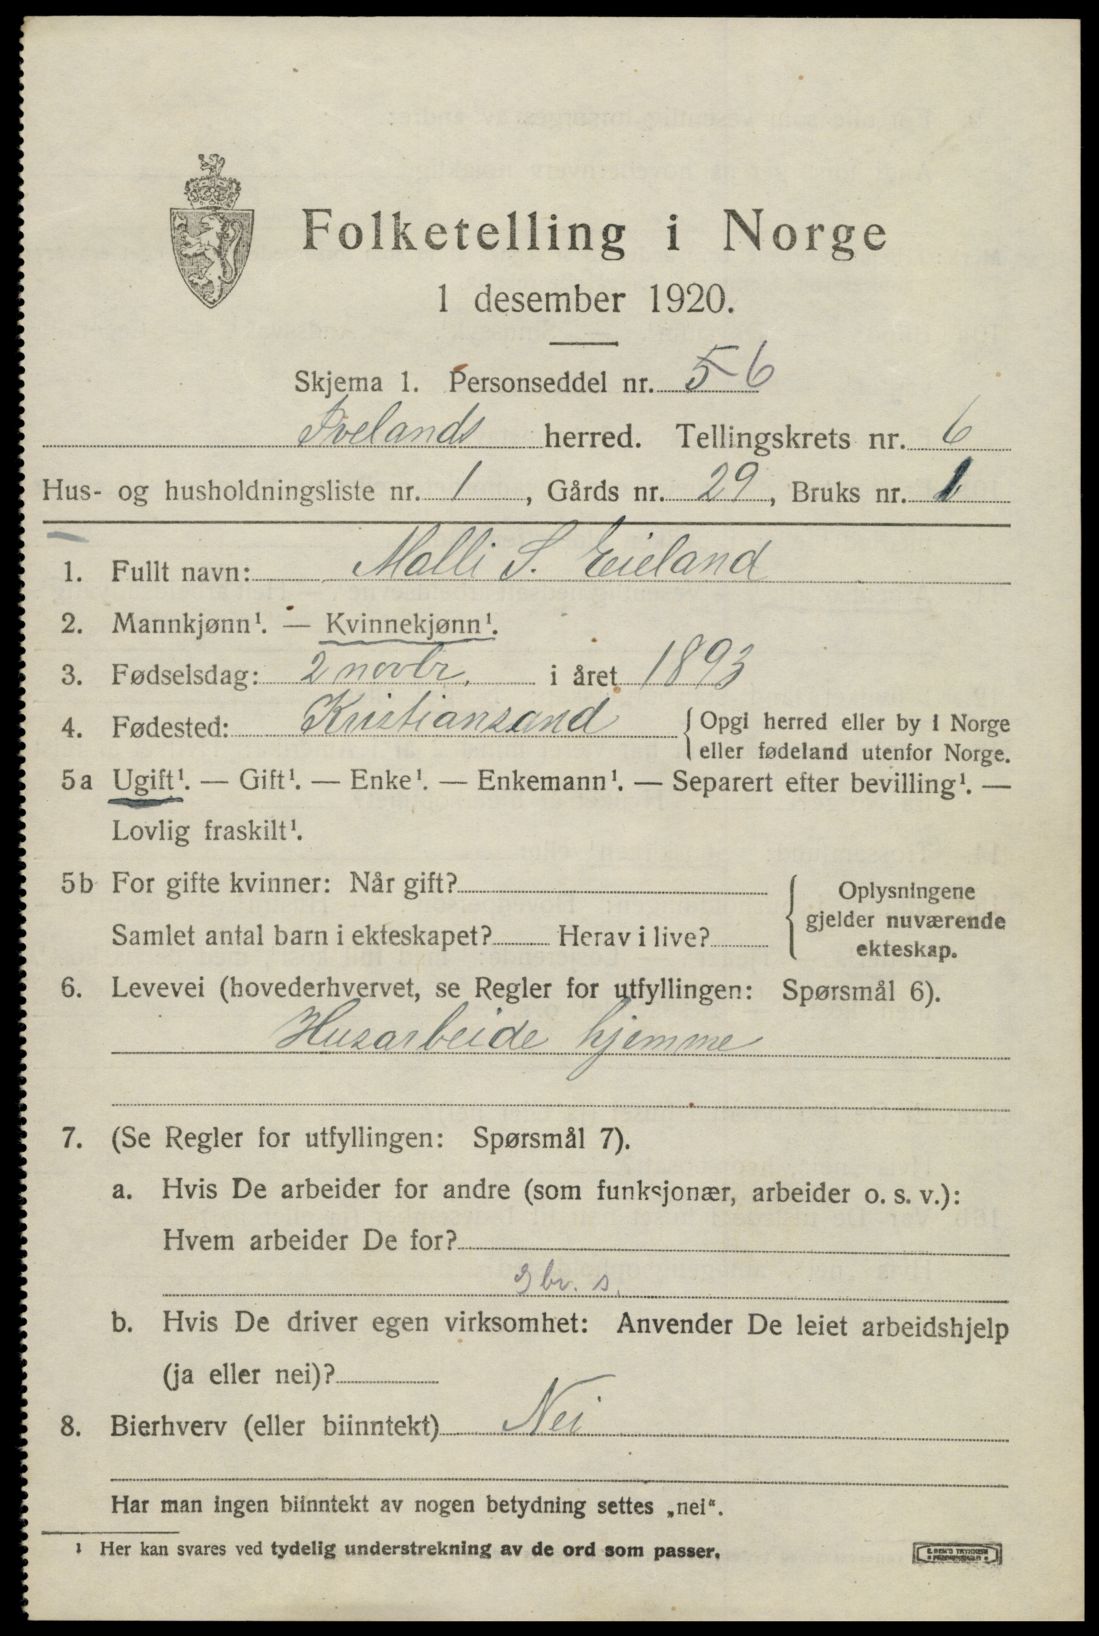 Folketelling i Norge
1 desember 1920.
Skjema 1. Personseddel nr. 56
Ivelands herred. Tellingskrets nr. 6
Hus- og husholdningsliste nr. 1, Gårds nr. 29, Bruks nr. 1
1. Fullt navn: Malli S. Eieland
2. Mannkjønn¹. — Kvinnekjønn¹.
3. Fødselsdag: 2 novbr. i året 1893
4. Fødested: Kristiansand { Opgi herred eller by i Norge
eller fødeland utenfor Norge.
5a Ugift¹. — Gift¹. — Enke¹. — Enkemann¹. — Separert efter bevilling¹. —
Lovlig fraskilt¹.
5b For gifte kvinner: Når gift?
Samlet antal barn i ekteskapet? Herav i live?
{ Oplysningene
gjelder nuværende
ekteskap.
6. Levevei (hovederhvervet, se Regler for utfyllingen: Spørsmål 6).
Husarbeide hjemme
7. (Se Regler for utfyllingen: Spørsmål 7).
a. Hvis De arbeider for andre (som funksjonær, arbeider o. s. v.):
Hvem arbeider De for?
gbr. s.
b. Hvis De driver egen virksomhet: Anvender De leiet arbeidshjelp
(ja eller nei)?
8. Bierhverv (eller biinntekt) Nei
Har man ingen biinntekt av nogen betydning settes „nei“.
¹ Her kan svares ved tydelig understrekning av de ord som passer.